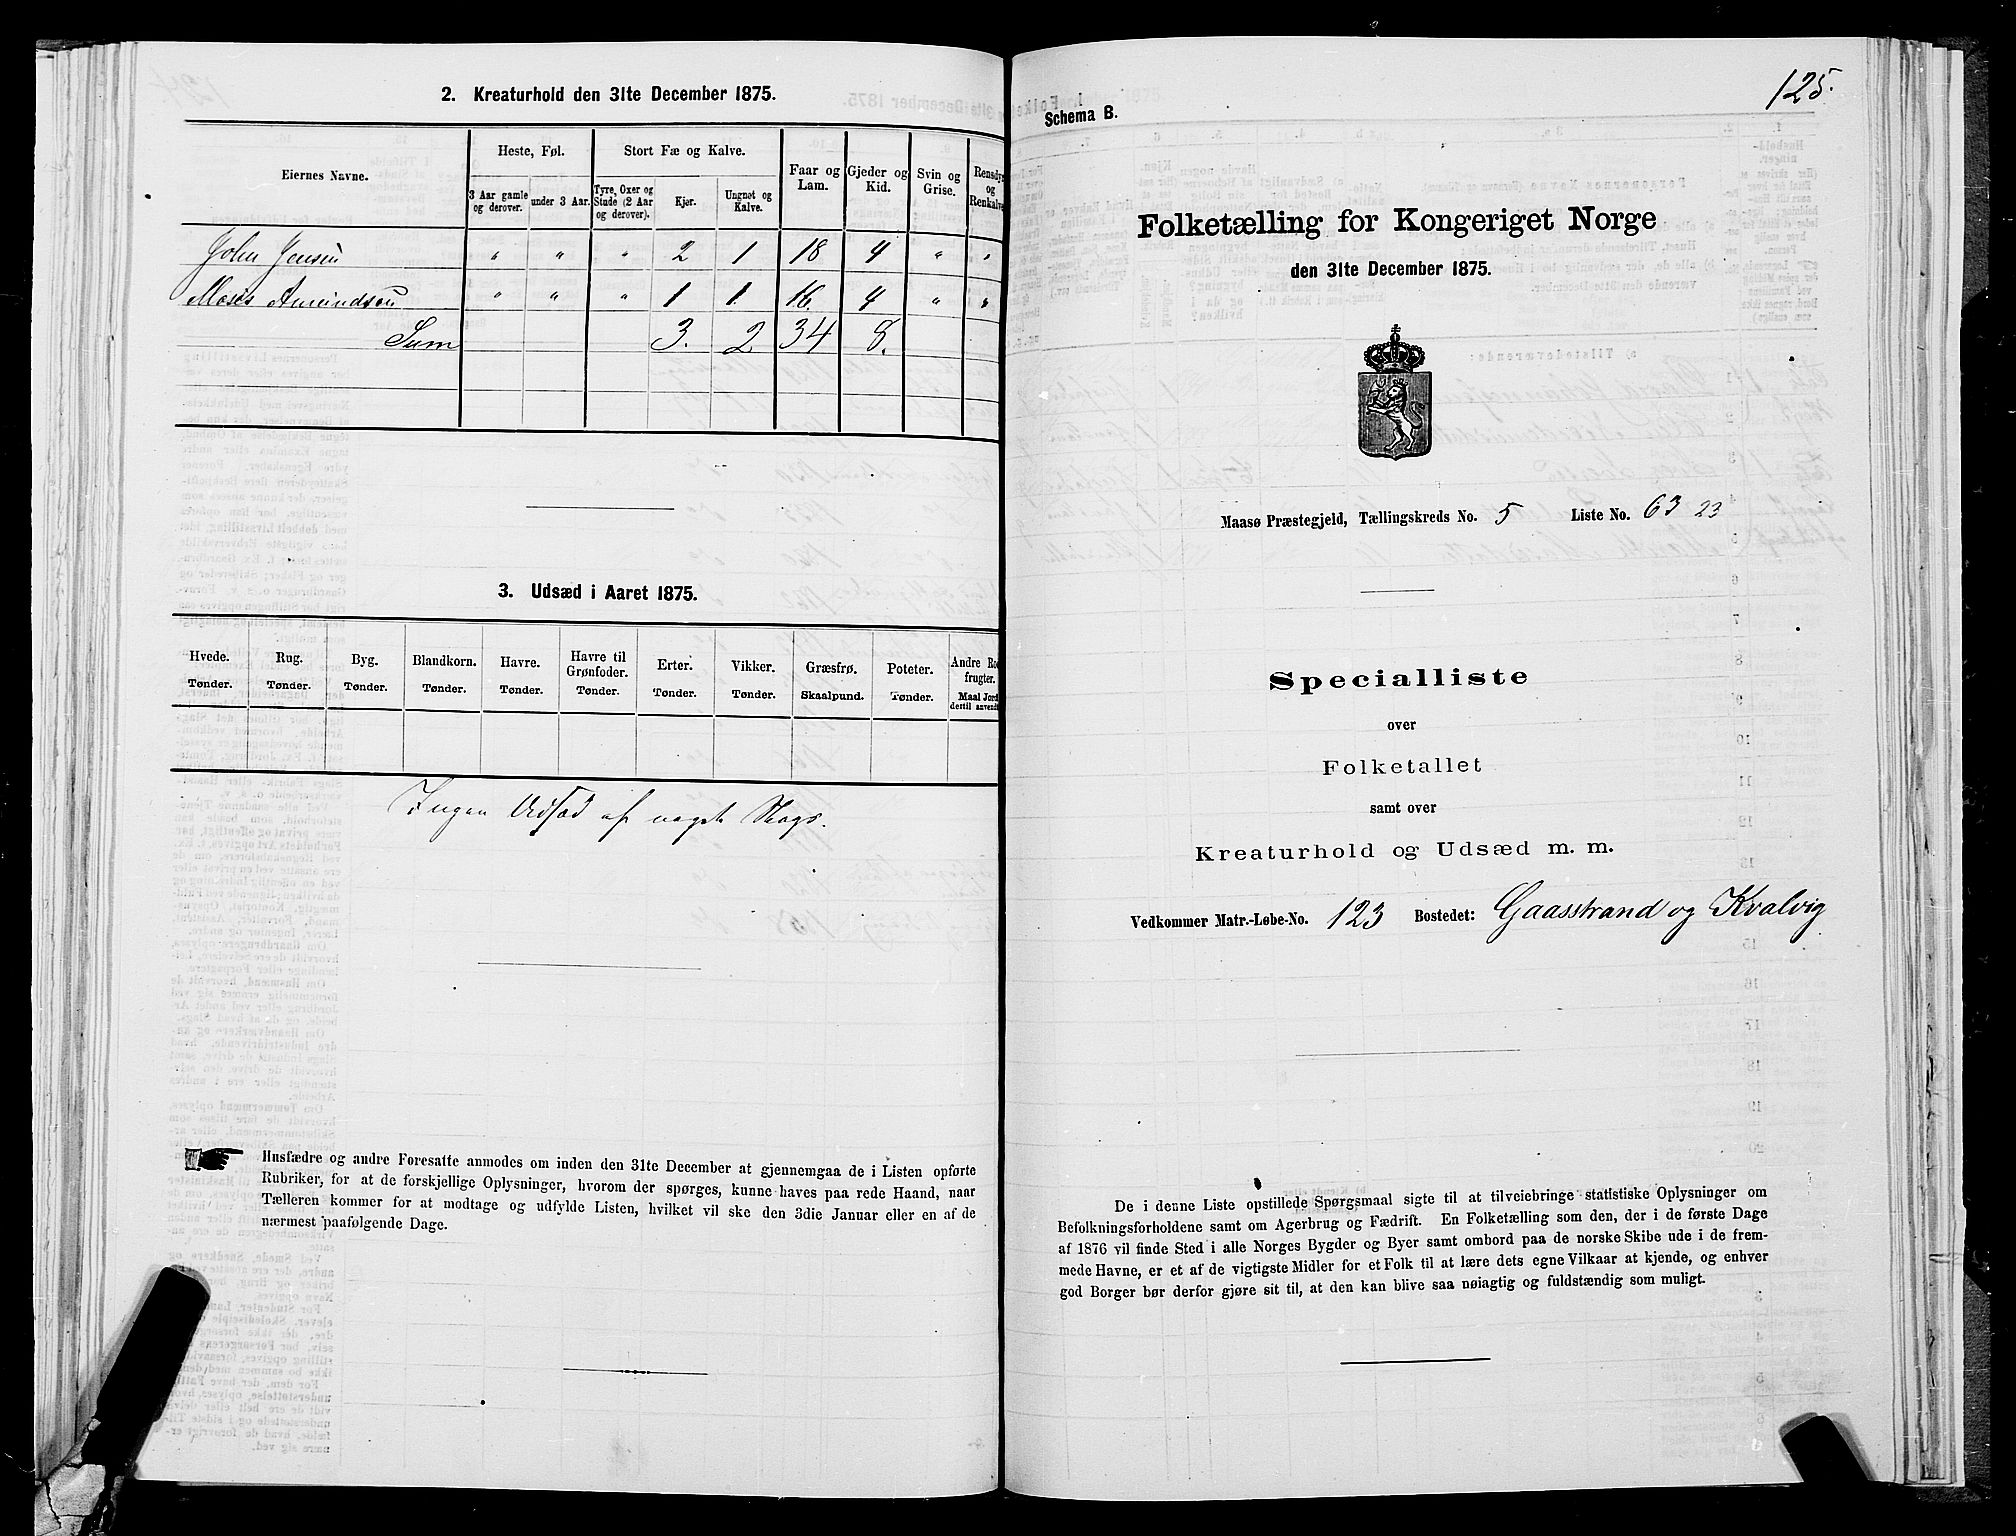 2. Kreaturhold den 31te December 1875.
Eiernes Navne.
Heste, Føl.
Stort Fæ og Kalve.
Faar og Lam.
Gjeder og Kid.
Svin og Grise.
Rensdyr og Renkalve
3 Aar gamle og derover.
under 3 Aar.
Tyre, Oxer og Stude (2 Aar og derover).
Kjør.
Ungnøt og Kalve.
John Jensen " " " 2 1 18 4 " "
Moses Amundsen " " " 1 1. 16. 4 " "
Sum 3. 2 34 8.
3. Udsæd i Aaret 1875.
Hvede. Tønder.
Rug. Tønder.
Byg. Tønder.
Blandkorn. Tønder.
Havre. Tønder.
Havre til Grønfoder. Tønder.
Erter. Tønder.
Vikker. Tønder.
Græsfrø. Skaalpund.
Poteter. Tønder.
Andre Ro- frugter. Maal Jord dertil anvendt
Ingen Udsæd af noget Slags.
Husfædre og andre Foresatte anmodes om inden den 31te December at gjennemgaa de i Listen opførte
Rubriker, for at de forskjellige Oplysninger, hvorom der spørges, kunne haves paa rede Haand, naar
Tælleren kommer for at modtage og udfylde Listen, hvilket vil ske den 3die Januar eller en af de
nærmest paafølgende Dage.
125.
Schema B.
Folketælling for Kongeriget Norge
den 31te December 1875.
Maasø Præstegjeld, Tællingskreds No. 5 Liste No. 63 23
Specialliste
over
Folketallet
samt over
Kreaturhold og Udsæd m. m.
Vedkommer Matr.-Løbe-No. 123 Bostedet: Gaasstrand og Kvalvig
De i denne Liste opstillede Spørgsmaal sigte til at tilveiebringe statistiske Oplysninger om
Befolkningsforholdene samt om Agerbrug og Fædrift. En Folketælling som den, der i de første Dage
af 1876 vil finde Sted i alle Norges Bygder og Byer samt ombord paa de norske Skibe ude i de frem-
mede Havne, er et af de vigtigste Midler for et Folk til at lære dets egne Vilkaar at kjende, og enhver
god Borger bør derfor gjøre sit til, at den kan blive saa nøiagtig og fuldstændig som muligt.